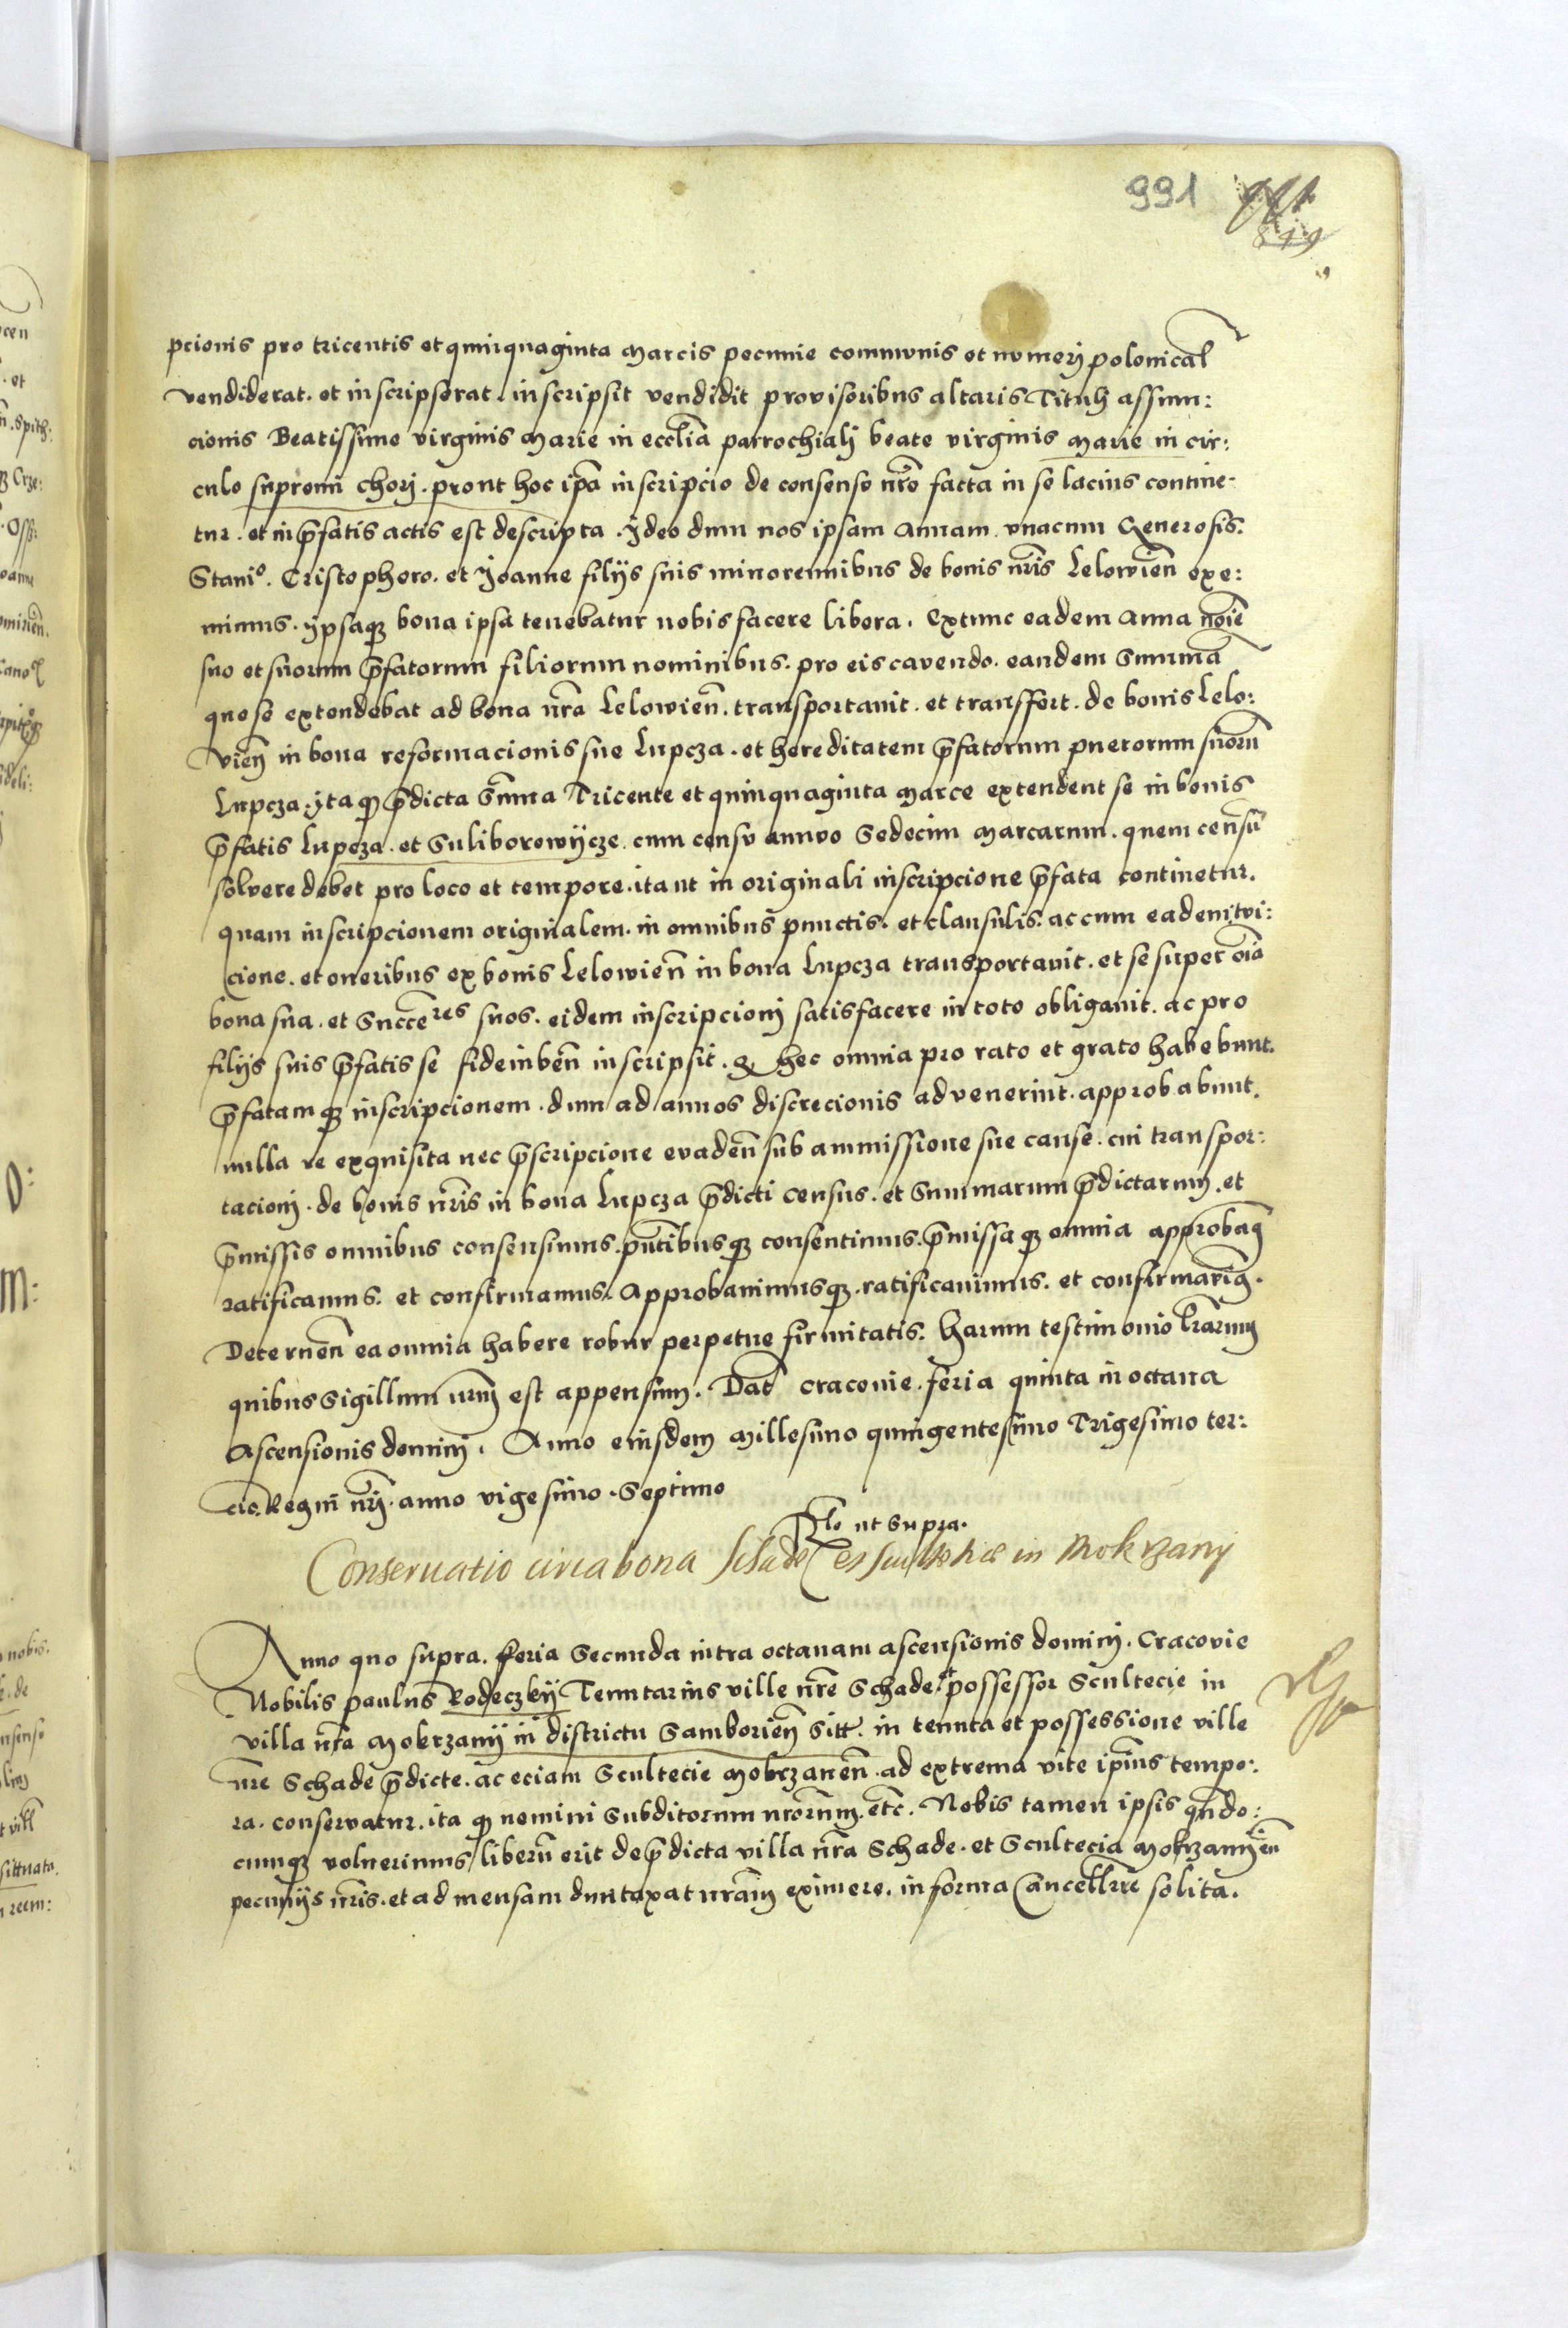 991
849
pcionis pro tricentis et quinquaginta marcis pecunie communis et numerj polonical
vendiderat. et inscripserat. inscripsit vendidit provisoribus altaris Titulj assum:
cionis Beatissime virginis marie in eccl̄ia parrochialj beate virginis marie in cir:
culo supremi chorj. prout hoc ip̄a inscripcio de consensu nr̄o facta in se lacius contine-
tur. et in p̄fatis actis est descripta. Jdeo dum nos ipsam Annam. vnacum Generosis.
Staniº. Cristophoro. et Joanne filijs suis minorennibus de bonis nr̄is Lelowien̄ exe:
mimus. ypsaqȝ bona ipsa tenebatur nobis facere libera. Extunc eadem Anna noīe
suo et suorum p̄fatorum filiorum nominibus. pro eis cavendo. eandem Summā
que se extendebat ad bona nr̄a Lelowien̄. transportauit. et transffert. de bonis Lelo:
vien̄ in bona reformacionis sue Lupcza. et hereditatem p̄fatorum puerorum suorū
Lupcza. yta qȝ p̄dicta Sum̄a Tricente et quinquaginta marce extendent se in bonis
p̄fatis Lupcza. et Suliborowÿcze. cum censu annuo Sedecim marcarum. quem censū
solvere debet pro loco et tempore. ita ut in originali inscripcione p̄fata continetur.
quam inscripcionem originalem. in omnibus punctis. et clausulis. ac cum eadem evi:
cione. et oneribus ex bonis Lelowien̄ in bona Lupcza transportavit. et se super oīa
bona sua. et Succēres suos. eidem inscripcionj satisfacere in toto obligauit. ac pro
filijs suis p̄fatis se fideiuben̄ inscripsit. qȝ hec omnia pro rato et grato habebunt.
p̄fatamqȝ inscripcionem. dum ad annos discrecionis advenerint. approbabunt.
nulla re exquisita nec p̄scripcione evaden̄ sub ammissione sue cause. cui transpor:
tacionj. de bonis nr̄is in bona Lupcza p̄dicti census. et Summarum p̄dictarum. et
p̄missis omnibus consensimus. pn̄tibusqȝ consentimus. p̄missaqȝ omnia approbam9
ratificamus. et confirmamus. Approbauimusqȝ. ratificauimus. et confirmavim9.
Decernen̄ ea omnia habere robur perpetue firmitatis. Harum testimonio lr̄arum
quibus Sigillum nr̄um est appensum. Dat̄ Cracovie. feria quinta in octaua
Ascensionis dominj. Anno eiusdem Millesimo quingentesimo Trigesimo ter:
cio. Regni nr̄j. anno vigesimo. Septimo
Rlo ut supra.
Conseruatio circa bona Schade et Scultetiæ in Mokrzany
Anno quo supra. feria Secunda intra octauam ascensionis dominj. Cracovie
Nobilis paulus Rodeczkÿ Tenutarius ville nr̄e Schade. et possessor Scultecie in
villa nr̄a Mokrzanÿ in districtu Samborien̄ sitt. in tenuta et possessione ville
nr̄e Schade p̄dicte. ac eciam Scultecie Mokrzanen̄. ad extrema vite ip̄ius tempo:
ra. conservatur. ita qȝ nemini Subditorum nr̄orum. etc. Nobis tamen ipsis qn̄do:
cumqȝ voluerimus liberū erit de p̄dicta villa nr̄a Schade. et Scultecia Mokrzanÿen̄
pecunijs nr̄is. et ad mensam duntaxat nr̄am eximere. in forma Cancellrie solita.